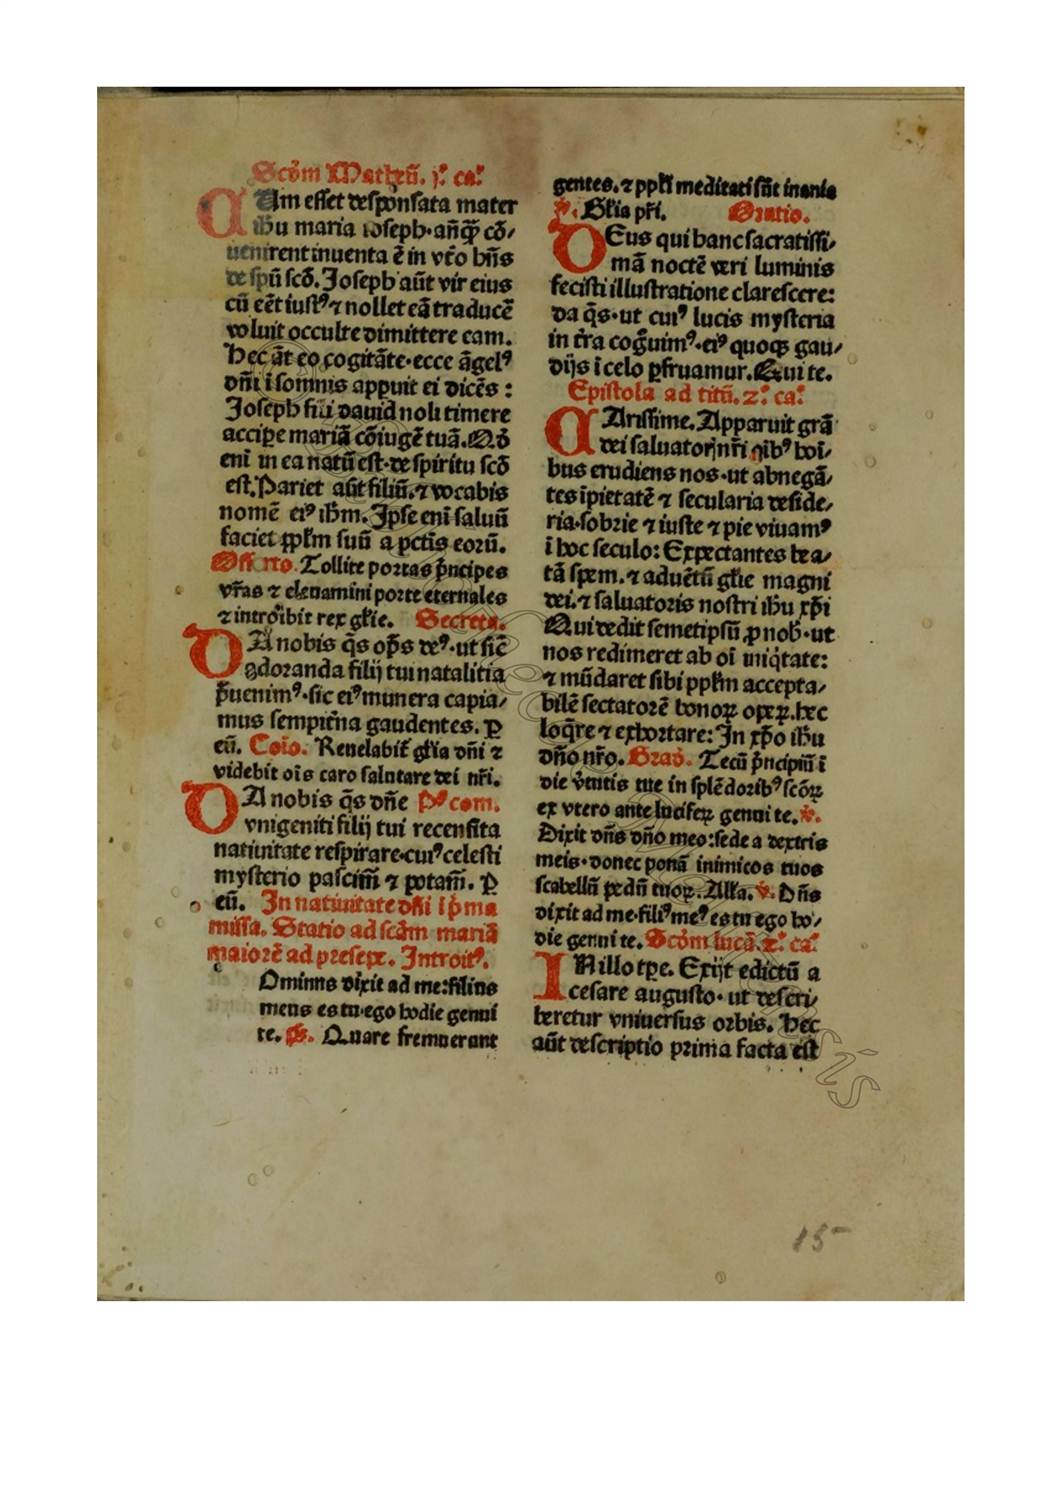 Scḋm Matheū. j.° ca.°
CUm esset desponsata mater
ihū maria ioseph·añꝗ̄ cō/
uenirent inuenta ē in vt̄o hn̄s
de spū scō. Joseph aūt vir eius
cū eēt iustꝰ ⁊ nollet eā traducē
voluit occulte dimittere eam.
Hec āt eo cogitāte·ecce āgelꝰ
dn̄i ī somnis appuit ei dicēs :
Joseph fili dauid noli timere
accipe mariā cōiugē tuā. Qḋ
eni in ea natū est·de spiritu scō
est. Pariet aūt filiū.⁊ vocabis
nomē eiꝰ ihm̄. Jpse eni saluū
faciet ꝓplm̄ suū a pctīs eorū.
Offerto. Tollite portas p̄ncipes
vr̄as ⁊ eleuamini porte eternales
⁊ introibit rex gl̄ie. Secreta.
DA nobis q̄s op̄s deꝰ·ut sic̄
adoranda filij tui natalitia
p̄uenimꝰ·sic eiꝰ munera capia/
mus sempit̄na gaudentes. ꝑ
eū. Coīo. Reuelabit̄ gl̄ia dn̄i ⁊
videbit oīs caro salutare dei nr̄i.
DA nobis q̄s dn̄e Pꝰ com.
vnigeniti filij tui recensita
natiuitate respirare·cuiꝰ celesti
mysterio pascim̄ ⁊ potam̄. ꝑ
eū. In natiuitate dn̄i ī p̄ma
missa. Statio ad scām mariā
maiorē ad presepe. Introitꝰ.
Ominns dixit ad me:filius
meus es tu·ego hodie genui
te. Ps. Quare fremuerunt
gentes.⁊ ppl̄i meditati sūt inania
℣. Gl̄ia pr̄i. Oratio.
DEus qui hanc sacratissi/
mā noctē veri luminis
fecisti illustratione clarescere:
da q̄s·ut cuiꝰ lucis mysteria
in t̄ra cog̃uimꝰ·eiꝰ quoqꝫ gau/
dijs ī celo ꝑfruamur. Qui te.
Epistola ad titū. 2.° ca.°
CArissime. Apparuit grā
dei saluatorj nr̄i oībꝰ hoī/
bus erudiens nos·ut abnegā/
tes īpietatē ⁊ secularia deside/
ria·sobrie ⁊ iuste ⁊ pie viuamꝰ
ī hoc seculo: Expectantes bea/
tā spem.⁊ aduētū gl̄ie magni
dei.⁊ saluatoris nostri ihū xp̄i
Qui dedit semetipsū ꝓ nob̄·ut
nos redimeret ab oī iniq̇tate:
⁊ mūdaret sibi pplm̄ accepta/
bilē sectatorē bonoꝝ opeꝝ.hec
loq̄re ⁊ exhortare: In xp̄o ihū
dn̄o nr̄o. Grad̄. Tecū p̄ncipiū ī
die v̄tutis tue in splēdoribꝰ scōꝝ
ex vtero ante luciferꝝ genui te.℣.
Dixit dn̄s dn̄o meo:sede a dextris
meis·donec ponā inimicos tuos
scabellū pedū tuoꝝ. All̄a.℣. Dn̄s
dixit ad me·filiꝰ meꝰ es tu ego ho/
die genui te. Scḋm lucā.2.° ca.°
IN illo tp̄e. Exijt edictū a
cesare augusto· ut descri/
beretur vniuersus orbis. Hec
aūt descriptio prima facta est
15